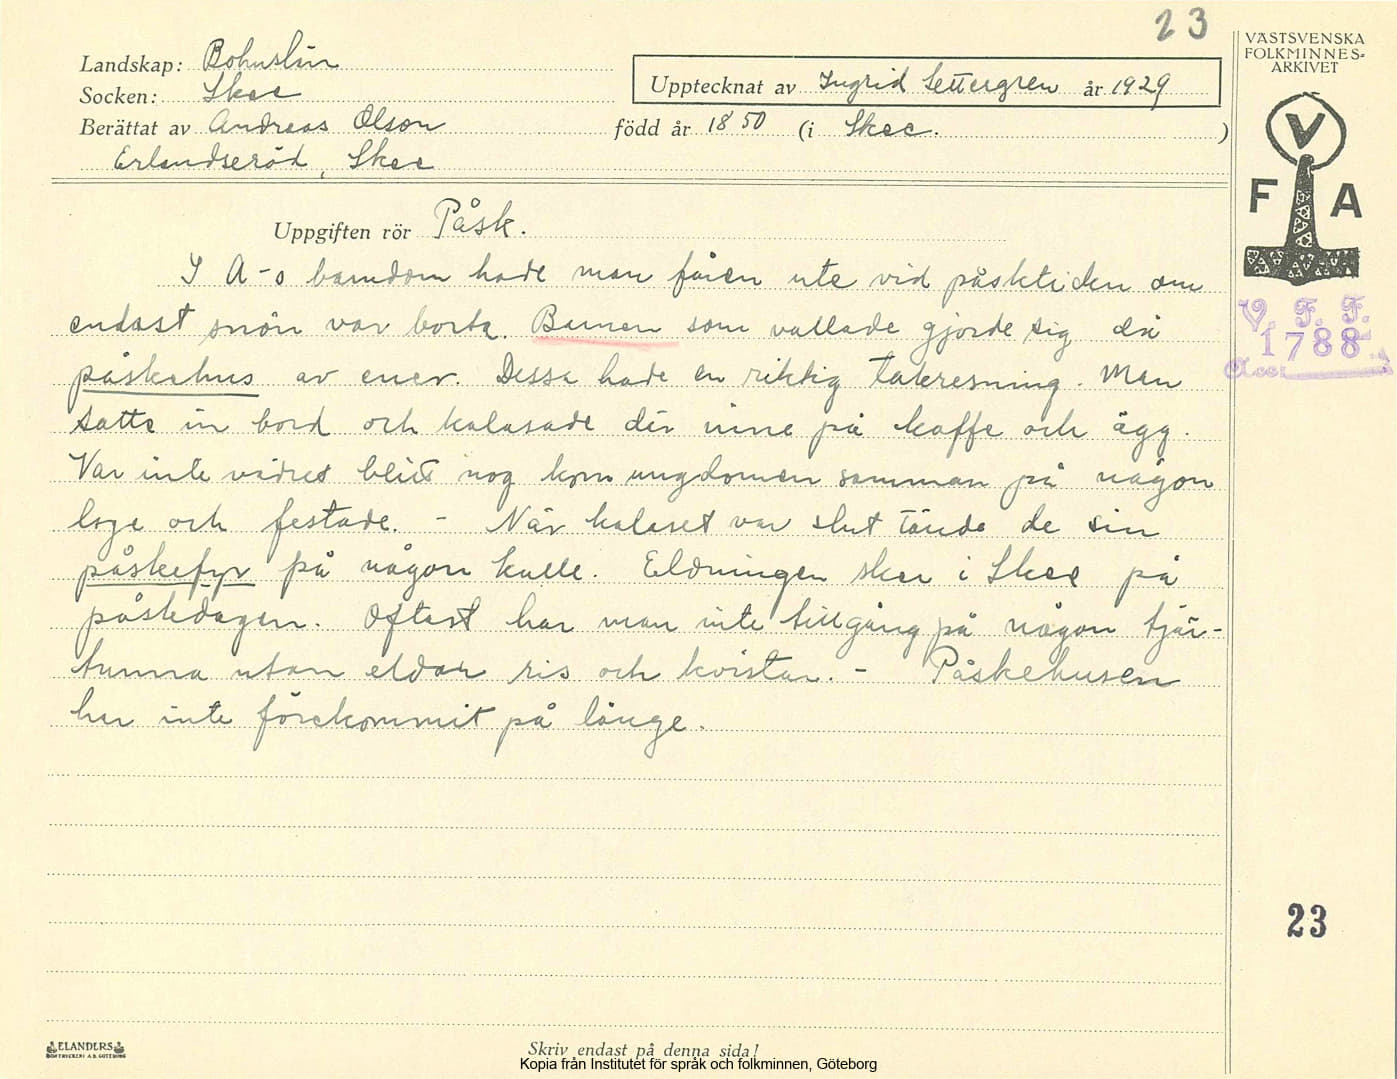 23
Landskap: Bohuslän
Socken: Skee
Upptecknat av Ingrid Settergren år 1929
Berättat av Andreas Olson
född år 1850 (i Skee.)
Erlandseröd, Skee
Uppgiften rör Påsk.
I A-s barndom hade man fåren ute vid påsktiden om
endast snön var borta. Barnen som vallade gjorde sig då
påskehus av ener. Dessa hade en riktig takresning. Man
satte in bord och kalasade där inne på kaffe och ägg.
Var inte vädret blidt nog kom ungdomen samman på någon
loge och festade. - När kalaset var slut tände de sin
påskefyr på någon kulle. Eldningen sker i Skee på
påskdagen. Oftast har man inte tillgång på någon tjär-
tunna utan eldar ris och kvistar. - Påskehusen
har inte förekommit på länge.
VÄSTSVENSKA
FOLKMINNES-
ARKIVET
V
F A
V. F. F.
1788
Acc.
23
ELANDERS
BOKTRYCKERI A.B. GÖTEBORG
Skriv endast på denna sida!
Kopia från Institutet för språk och folkminnen, Göteborg